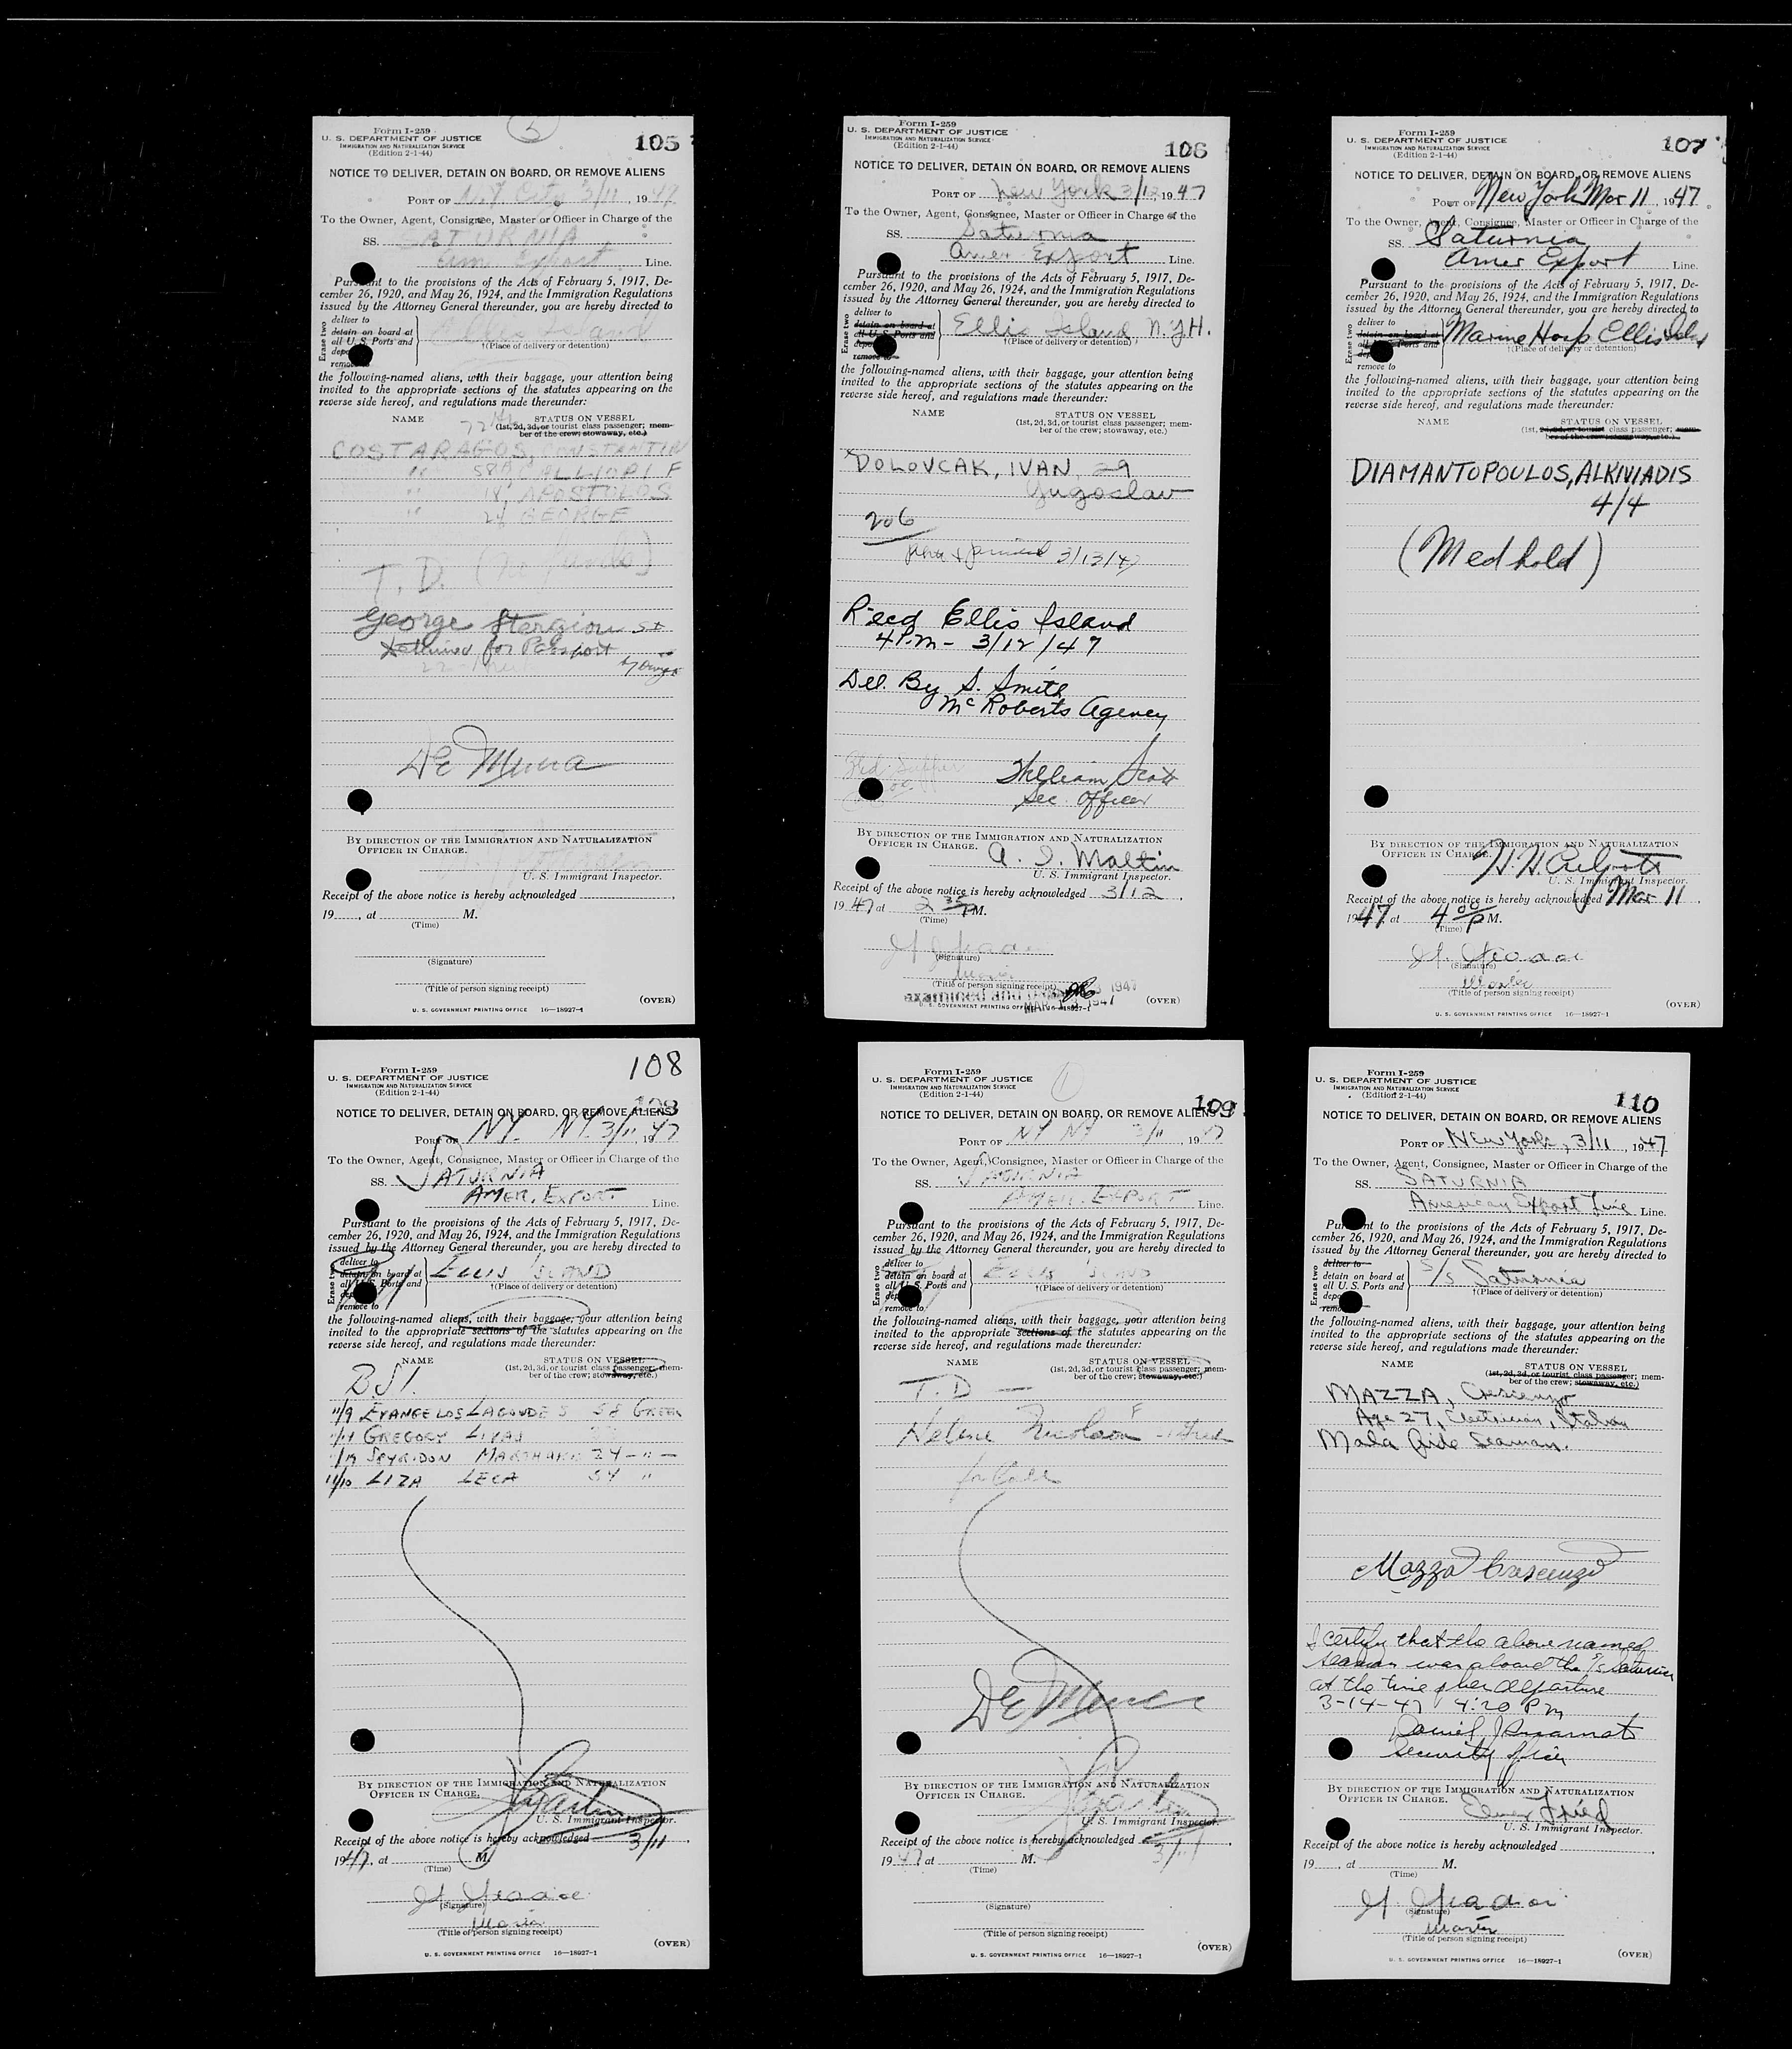 Form I-259
U. S. DEPARTMENT OF JUSTICE
IMMIGRATION AND NATURALIZATION SERVICE
(Edition 2-1-44)
5
105
NOTICE TO DELIVER, DETAIN ON BOARD, OR REMOVE ALIENS
PORT OF N.Y. City 3/11, 1947
To the Owner, Agent, Consignee, Master or Officer in Charge of the
SS. SATURNIA
Am. Export Line.
Pursuant to the provisions of the Acts of February 5, 1917, De-
cember 26, 1920, and May 26, 1924, and the Immigration Regulations
issued by the Attorney General thereunder, you are hereby directed to
Erase two
deliver to
detain on board at
all U. S. Ports and
remove to
Ellis Island
†(Place of delivery or detention)
the following-named aliens, with their baggage, your attention being
invited to the appropriate sections of the statutes appearing on the
reverse side hereof, and regulations made thereunder:
NAME
STATUS ON VESSEL
(1st, 2d, 3d, or tourist class passenger; mem-
ber of the crew; stowaway, etc.)
COSTARAGOS, CONSTANTIN
" 58 CALLIOPI F
" 18, APOSTOLOS
" 24 GEORGE
T. D. (no funds)
George Stergiou
detained for Passport
De Mucca
BY DIRECTION OF THE IMMIGRATION AND NATURALIZATION
OFFICER IN CHARGE.
U. S. Immigrant Inspector.
Receipt of the above notice is hereby acknowledged
19, at M.
(Time)
(Signature)
(Title of person signing receipt)
(OVER)
U. S. GOVERNMENT PRINTING OFFICE 16—18927-1
Form I-259
U. S. DEPARTMENT OF JUSTICE
IMMIGRATION AND NATURALIZATION SERVICE
(Edition 2-1-44)
106
NOTICE TO DELIVER, DETAIN ON BOARD, OR REMOVE ALIENS
PORT OF New York 3/12, 1947
To the Owner, Agent, Consignee, Master or Officer in Charge of the
SS. Saturnia
Amer Export Line.
Pursuant to the provisions of the Acts of February 5, 1917, De-
cember 26, 1920, and May 26, 1924, and the Immigration Regulations
issued by the Attorney General thereunder, you are hereby directed to
Erase two
deliver to
detain on board at
all U. S. Ports and
remove to
Ellis Island N.Y.H.
†(Place of delivery or detention)
the following-named aliens, with their baggage, your attention being
invited to the appropriate sections of the statutes appearing on the
reverse side hereof, and regulations made thereunder:
NAME
STATUS ON VESSEL
(1st, 2d, 3d, or tourist class passenger; mem-
ber of the crew; stowaway, etc.)
DOLOVCAK, IVAN, 29
Yugoslav
206
3/13/47
Recd Ellis Island
4 P.m - 3/12/47
Del. By S. Smith
McRoberts Agency
William Scott
Sec. Officer
BY DIRECTION OF THE IMMIGRATION AND NATURALIZATION
OFFICER IN CHARGE. A. I. Maltin
U. S. Immigrant Inspector.
Receipt of the above notice is hereby acknowledged 3/12,
1947 at 2 35 PM.
(Time)
(Signature)
Master
(Title of person signing receipt)
examined and
MAR 13 1947
(OVER)
U. S. GOVERNMENT PRINTING OFFICE 16—18927-1
Form I-259
U. S. DEPARTMENT OF JUSTICE
IMMIGRATION AND NATURALIZATION SERVICE
(Edition 2-1-44)
107
NOTICE TO DELIVER, DETAIN ON BOARD, OR REMOVE ALIENS
PORT OF New York Mar 11 1947
To the Owner, Agent, Consignee, Master or Officer in Charge of the
SS. Saturnia
Amer Export Line.
Pursuant to the provisions of the Acts of February 5, 1917, De-
cember 26, 1920, and May 26, 1924, and the Immigration Regulations
issued by the Attorney General thereunder, you are hereby directed to
Erase two
deliver to
detain on board at
all U. S. Ports and
remove to
Marine Hosp Ellis Isld
†(Place of delivery or detention)
the following-named aliens, with their baggage, your attention being
invited to the appropriate sections of the statutes appearing on the
reverse side hereof, and regulations made thereunder:
NAME
STATUS ON VESSEL
(1st, 2d, 3d, or tourist class passenger; mem-
ber of the crew; stowaway, etc.)
DIAMANTOPOULOS, ALKIVIADIS
4/4
(Med hold)
BY DIRECTION OF THE IMMIGRATION AND NATURALIZATION
OFFICER IN CHARGE.
U. S. Immigrant Inspector.
Receipt of the above notice is hereby acknowledged Mar 11,
1947, at 4 00 P M.
(Time)
(Signature)
Master
(Title of person signing receipt)
(OVER)
U. S. GOVERNMENT PRINTING OFFICE 16—18927-1
Form I-259
U. S. DEPARTMENT OF JUSTICE
IMMIGRATION AND NATURALIZATION SERVICE
(Edition 2-1-44)
108
108
NOTICE TO DELIVER, DETAIN ON BOARD, OR REMOVE ALIENS
PORT OF NY. NY. 3/11 1947
To the Owner, Agent, Consignee, Master or Officer in Charge of the
SS. SATURNIA
AMER. EXPORT Line.
Pursuant to the provisions of the Acts of February 5, 1917, De-
cember 26, 1920, and May 26, 1924, and the Immigration Regulations
issued by the Attorney General thereunder, you are hereby directed to
Erase two
deliver to
detain on board at
all U. S. Ports and
remove to
ELLIS ISLAND
†(Place of delivery or detention)
the following-named aliens, with their baggage, your attention being
invited to the appropriate sections of the statutes appearing on the
reverse side hereof, and regulations made thereunder:
NAME
STATUS ON VESSEL
(1st, 2d, 3d, or tourist class passenger; mem-
ber of the crew; stowaway, etc.)
B.S.I.
11/9 EVANGELOS LAGOUDES 58 GREEK
GREGORY LIKAS
SPYRIDON 24 - " -
11/10 LIZA LECA 54 "
BY DIRECTION OF THE IMMIGRATION AND NATURALIZATION
OFFICER IN CHARGE.
U. S. Immigrant Inspector.
Receipt of the above notice is hereby acknowledged 3/11,
1947, at M.
(Time)
(Signature)
Master
(Title of person signing receipt)
(OVER)
U. S. GOVERNMENT PRINTING OFFICE 16—18927-1
Form I-259
U. S. DEPARTMENT OF JUSTICE
IMMIGRATION AND NATURALIZATION SERVICE
(Edition 2-1-44)
1
109
NOTICE TO DELIVER, DETAIN ON BOARD, OR REMOVE ALIENS
PORT OF NY NY 3/11 1947
To the Owner, Agent, Consignee, Master or Officer in Charge of the
SS. SATURNIA
AMER. EXPORT Line.
Pursuant to the provisions of the Acts of February 5, 1917, De-
cember 26, 1920, and May 26, 1924, and the Immigration Regulations
issued by the Attorney General thereunder, you are hereby directed to
Erase two
deliver to
detain on board at
all U. S. Ports and
remove to
ELLIS ISLAND
†(Place of delivery or detention)
the following-named aliens, with their baggage, your attention being
invited to the appropriate sections of the statutes appearing on the
reverse side hereof, and regulations made thereunder:
NAME
STATUS ON VESSEL
(1st, 2d, 3d, or tourist class passenger; mem-
ber of the crew; stowaway, etc.)
T. D —
Helene
De Mucca
BY DIRECTION OF THE IMMIGRATION AND NATURALIZATION
OFFICER IN CHARGE.
U. S. Immigrant Inspector.
Receipt of the above notice is hereby acknowledged 3/11,
1947, at M.
(Time)
(Signature)
(Title of person signing receipt)
(OVER)
U. S. GOVERNMENT PRINTING OFFICE 16—18927-1
Form I-259
U. S. DEPARTMENT OF JUSTICE
IMMIGRATION AND NATURALIZATION SERVICE
(Edition 2-1-44)
110
NOTICE TO DELIVER, DETAIN ON BOARD, OR REMOVE ALIENS
PORT OF New York, 3/11, 1947
To the Owner, Agent, Consignee, Master or Officer in Charge of the
SS. SATURNIA
American Export Line Line.
Pursuant to the provisions of the Acts of February 5, 1917, De-
cember 26, 1920, and May 26, 1924, and the Immigration Regulations
issued by the Attorney General thereunder, you are hereby directed to
Erase two
deliver to
detain on board at
all U. S. Ports and
remove to
S/S Saturnia
†(Place of delivery or detention)
the following-named aliens, with their baggage, your attention being
invited to the appropriate sections of the statutes appearing on the
reverse side hereof, and regulations made thereunder:
NAME
STATUS ON VESSEL
(1st, 2d, 3d, or tourist class passenger; mem-
ber of the crew; stowaway, etc.)
MAZZA, Crescenzo
Age 27, Electrician, Italian
Mala Fide Seaman.
Mazza Crescenzo
I certify that the above named
seaman was aboard the S/S Saturnia
at the time of her departure
3-14-47 4:20 Pm
Security Officer
BY DIRECTION OF THE IMMIGRATION AND NATURALIZATION
OFFICER IN CHARGE. Elmer Fried
U. S. Immigrant Inspector.
Receipt of the above notice is hereby acknowledged
19, at M.
(Time)
(Signature)
Master
(Title of person signing receipt)
(OVER)
U. S. GOVERNMENT PRINTING OFFICE 16—18927-1